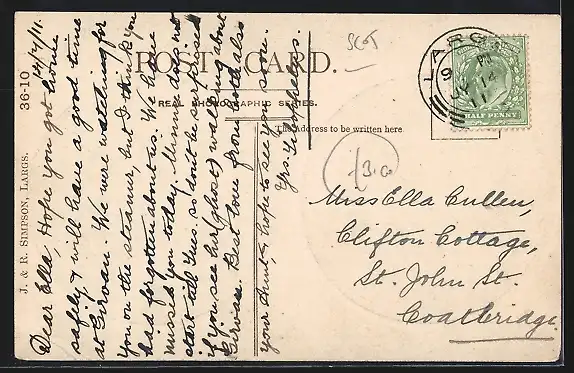 POST CARD.
REAL PHOTOGRAPHIC SERIES.
The Address to be written here
J. & R. SIMPSON, LARGS. 36-10
SCOT
LARGS
9 PM
JY 14
11
HALF PENNY
Miss Ella Cullen,
Clifton Cottage,
St. John St.
Coatbridge
14/7/11.
Dear Ella, Hope you got home
safely & will have a good time
at Girvan. We were watching for
you on the steamer, but I think you
had forgotten about us. We have
missed you today. Minnie does not
start till Tues. so don't be surprised
if you see her (ghost) walking about
Girvan. Best love from both also
your Aunt, & hope to see you soon.
Yrs.